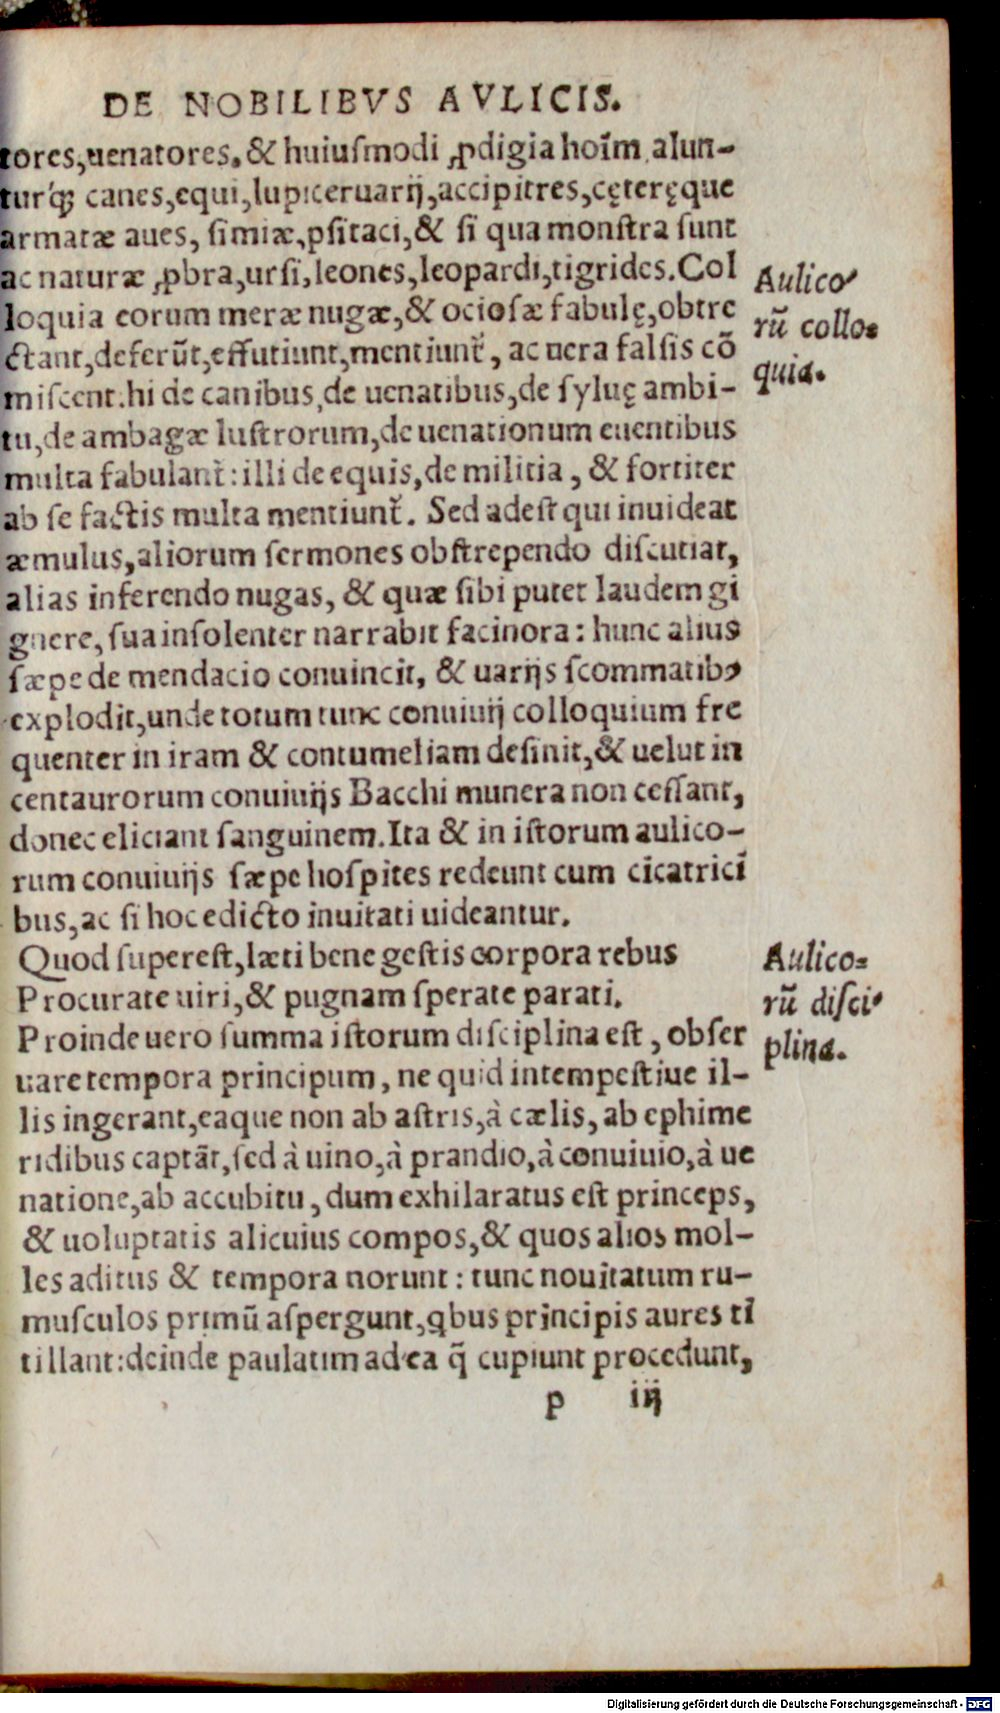 DE NOBILIBVS AVLICIS.
tores,uenatores,& huiuſmodi ꝓdigia hoīm,alun-
turq́ꝫ canes,equi,lupiceruarij,accipitres,cęteręque
armatæ aues, ſimiæ,pſitaci,& ſi qua monſtra ſunt
ac naturæ ꝓbra,urſi,leones,leopardi,tigrides.Col
loquia eorum meræ nugæ,& ocioſæ fabulę,obtre
ctant,deferūt,effutiunt,mentiunt᷑, ac uera falſis cō
miſcent.hi de canibus,de uenatibus,de ſyluę ambi-
tu,de ambagæ luſtrorum,de uenationum euentibus
multa fabulant᷑:illi de equis,de militia, & fortiter
ab ſe factis multa mentiunt᷑. Sed adeſt qui inuideat
æmulus,aliorum ſermones obſtrependo diſcutiat,
alias inferendo nugas, & quæ ſibi putet laudem gi
gnere, ſua inſolenter narrabit facinora: hunc alius
ſæpe de mendacio conuincit, & uarijs ſcommatibꝰ
explodit,unde totum tunc conuiuij colloquium fre
quenter in iram & contumeliam deſinit,& uelut in
centaurorum conuiuijs Bacchi munera non ceſſant,
donec eliciant ſanguinem.Ita & in iſtorum aulico-
rum conuiuijs ſæpe hoſpites redeunt cum cicatricī
bus,ac ſi hoc edicto inuitati uideantur.
Quod ſupereſt,læti bene geſtis corpora rebus
Procurate uiri,& pugnam ſperate parati.
Proinde uero ſumma iſtorum diſciplina eſt, obſer
uare tempora principum, ne quid intempeſtiue il-
lis ingerant,eaque non ab aſtris,à cælis, ab ephime
ridibus captāt,ſed à uino,à prandio,à conuiuio,à ue
natione,ab accubitu, dum exhilaratus eſt princeps,
& uoluptatis alicuius compos,& quos alios mol-
les aditus & tempora norunt: tunc nouitatum ru-
muſculos primū aſpergunt,ꝗbus principis aures tī
tillant:deinde paulatim ad ea q̄ cupiunt procedunt,
p iij
Aulico-
rū collo-
quia.
Aulico-
rū diſci-
plina.
Digitalisierung gefördert durch die Deutsche Forschungsgemeinschaft - DFG